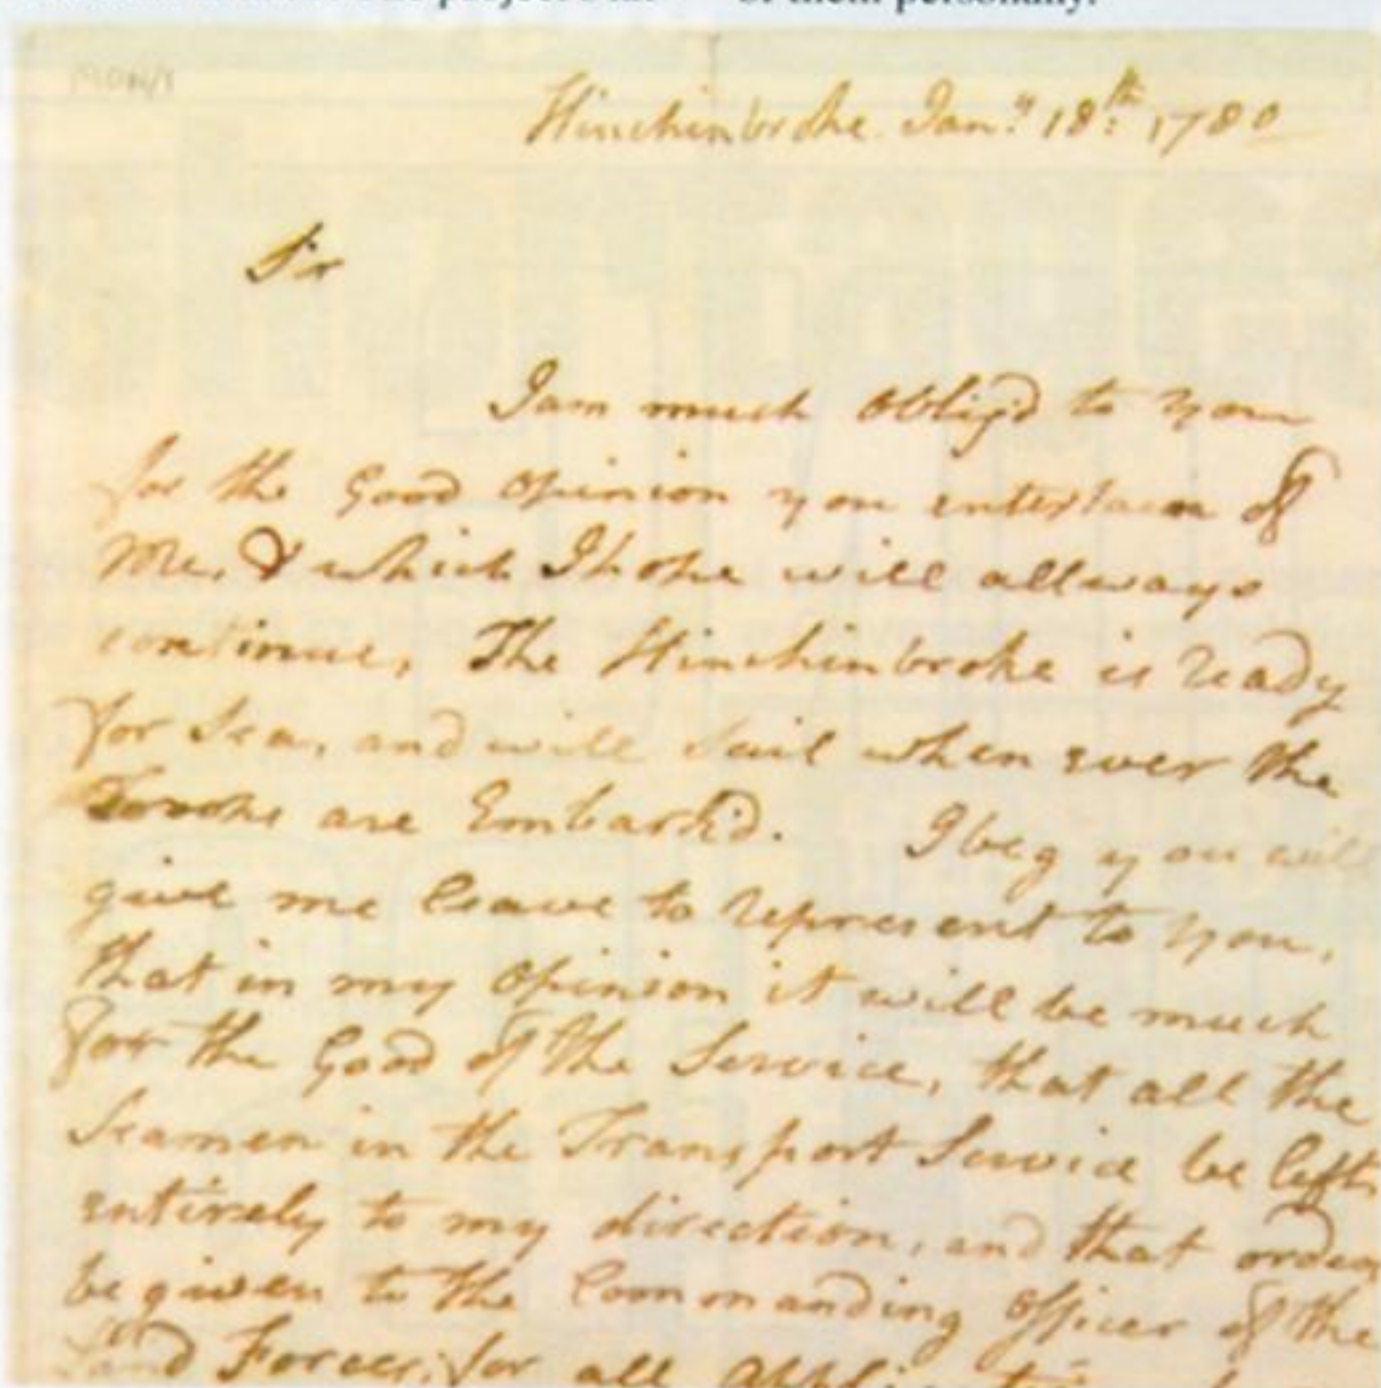 of them personally.
MON/1
Hinchinbroke Jan.y 18th: 1780
Sir
I am much obligd to you
for the Good opinion you entertain of
Me, & which I hope will allways
continue, The Hinchinbroke is ready
for Sea, and will Sail when ever the
Troops are Embark'd. I beg you will
give me leave to represent to you,
that in my opinion it will be much
for the Good of the Service, that all the
Seamen in the Transport Service be left
entirely to my direction, and that orders
be given to the Commanding officer of the
Land Forces, for all